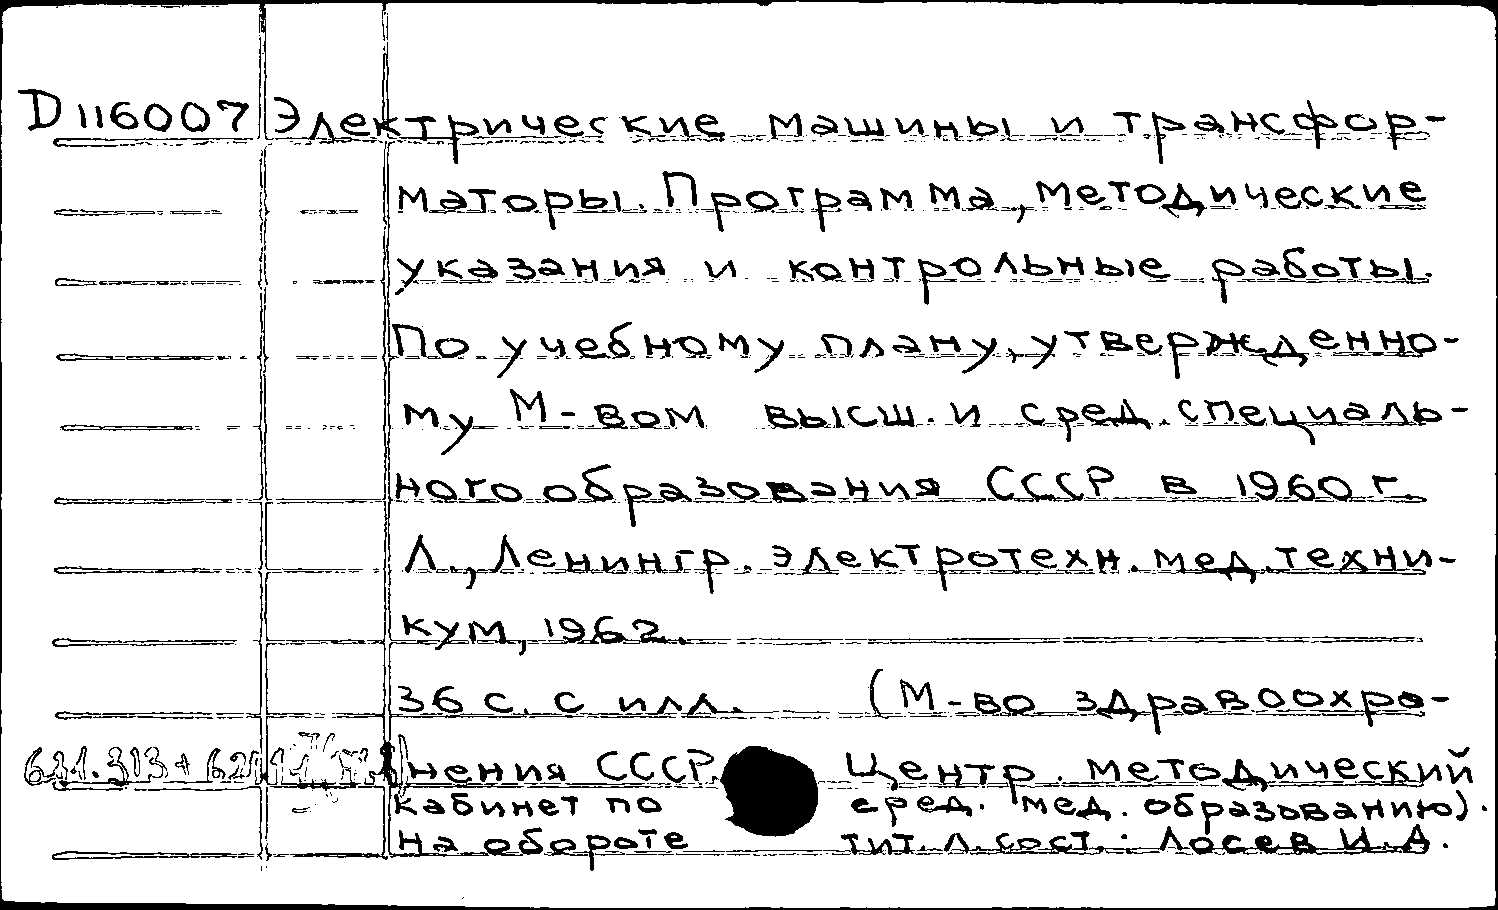 D116007 Электрические машины и трансфор-
маторы. Программа, методические
указания и контрольные работы.
По учебному плану, утвержденно-
му М-вом высш. и сред. специаль-
ного образования СССР в 1960 г.
Л., Ленингр. электротехн. мед. техни-
кум, 1962.
36 с. с илл. (М-во здравоохра-
621.313+621 нения СССР. Центр. методический
кабинет по сред. мед. образованию).
На обороте тит. л. сост.: Лосев И.А.